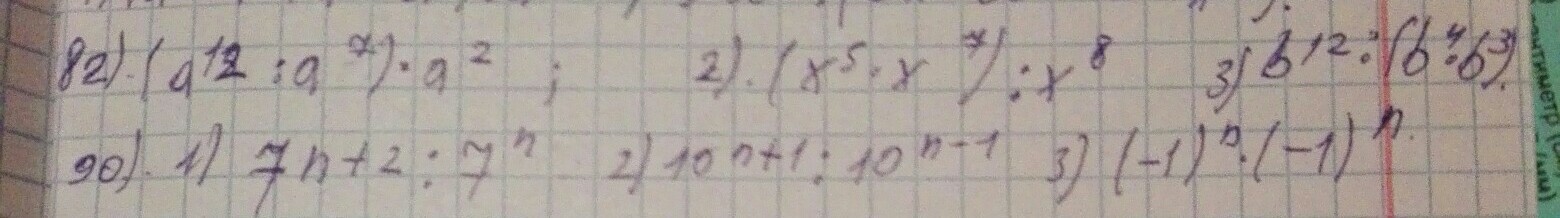 82). (a¹² : a⁷) · a² ; 2). (x⁵ · x⁷) : x⁸ 3) b¹² : (b⁴ : b³).
90). 1) 7ⁿ⁺² : 7ⁿ 2) 10ⁿ⁺¹ : 10ⁿ⁻¹ 3) (-1)ⁿ · (-1)ⁿ.